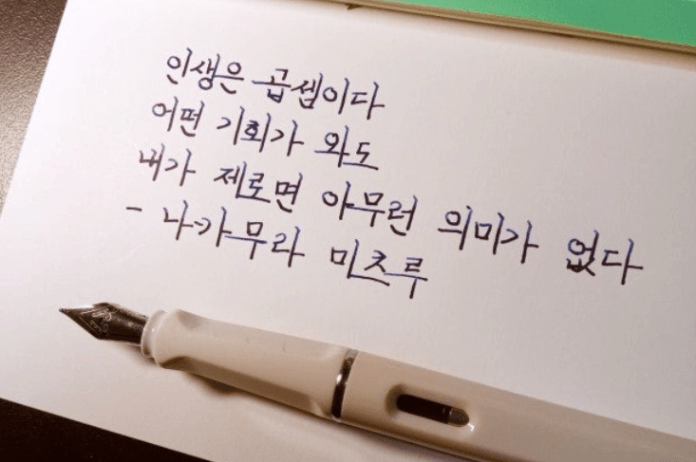 인생은 곱셉이다
어떤 기회가 와도
내가 제로면 아무런 의미가 없다
- 나카무라 미츠루